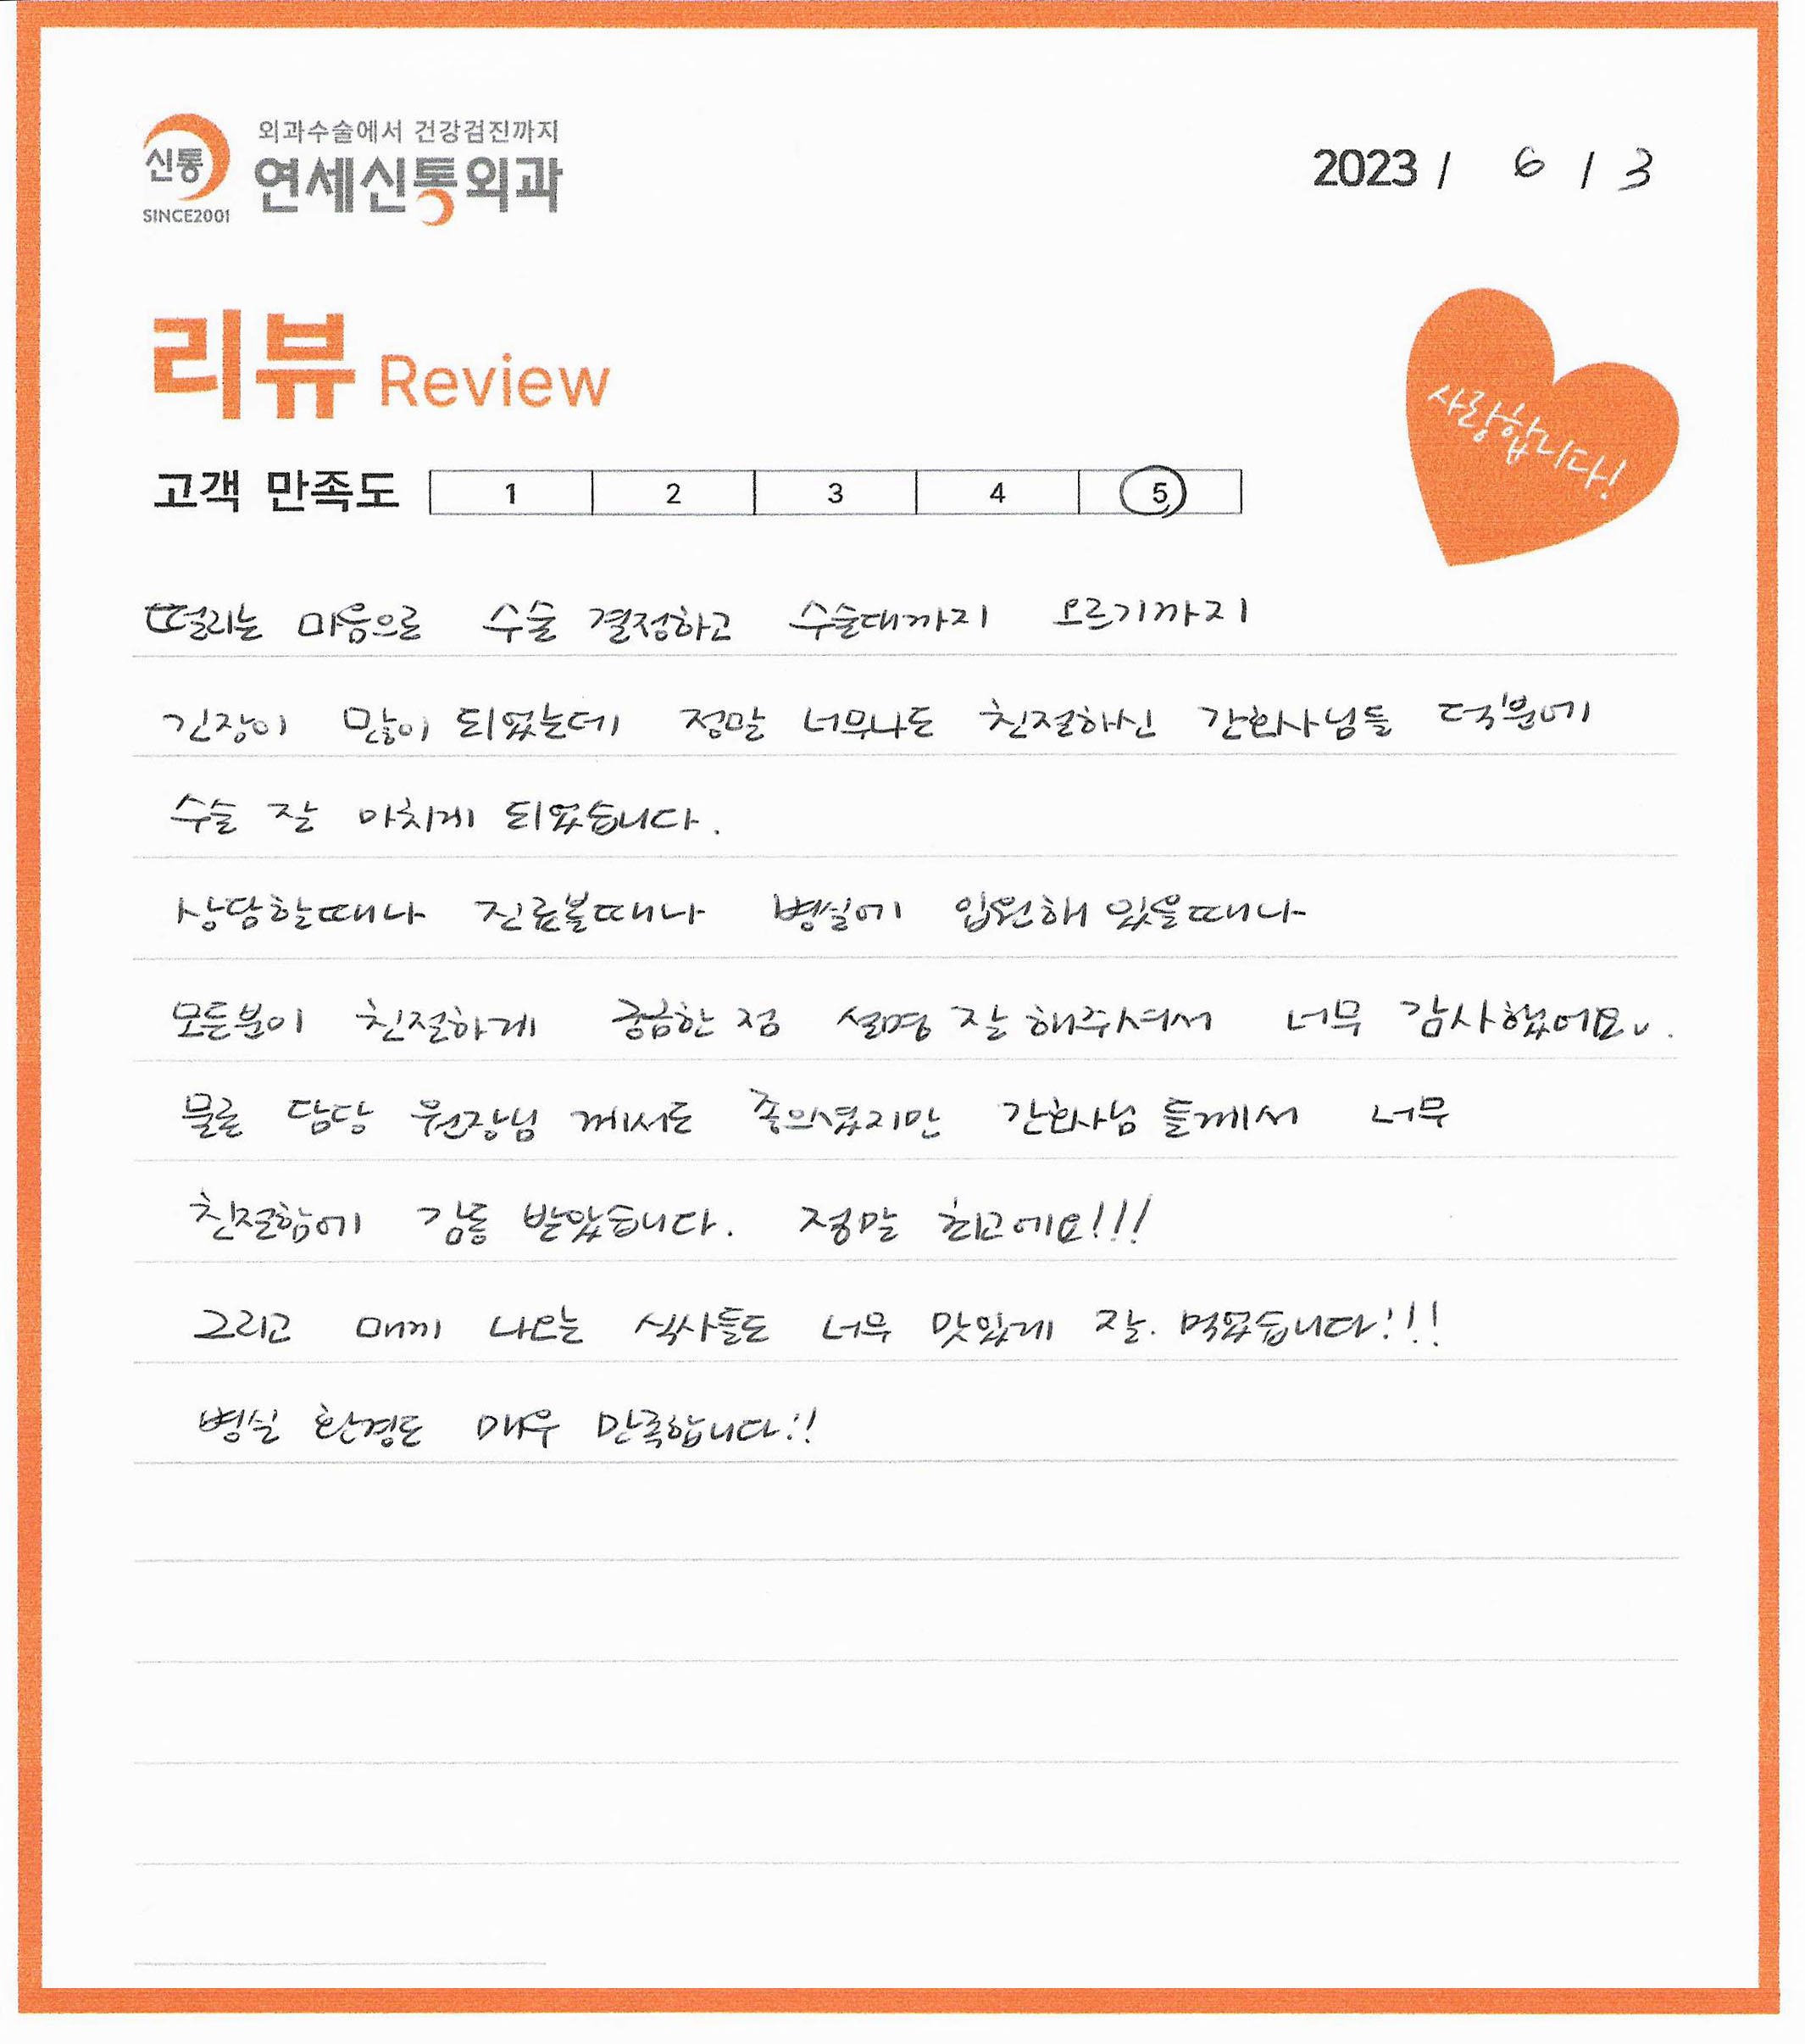 외과수술에서 건강검진까지
신통 연세신통외과
SINCE2001
2023 / 6 / 3
리뷰 Review
사랑합니다!
고객 만족도 1 2 3 4 5
떨리는 마음으로 수술 결정하고 수술대까지 오르기까지
긴장이 많이 되었는데 정말 너무나도 친절하신 간호사님들 덕분에
수술 잘 마치게 되었습니다.
상담할때나 진료볼때나 병실에 입원해 있을때나
모든분이 친절하게 궁금한 점 설명 잘 해주셔서 너무 감사했어요.
물론 담당 원장님 께서도 좋으셨지만 간호사님 들께서 너무
친절함에 감동 받았습니다. 정말 최고에요!!!
그리고 매끼 나오는 식사들도 너무 맛있게 잘. 먹었습니다!!!
병실 환경도 매우 만족합니다!!